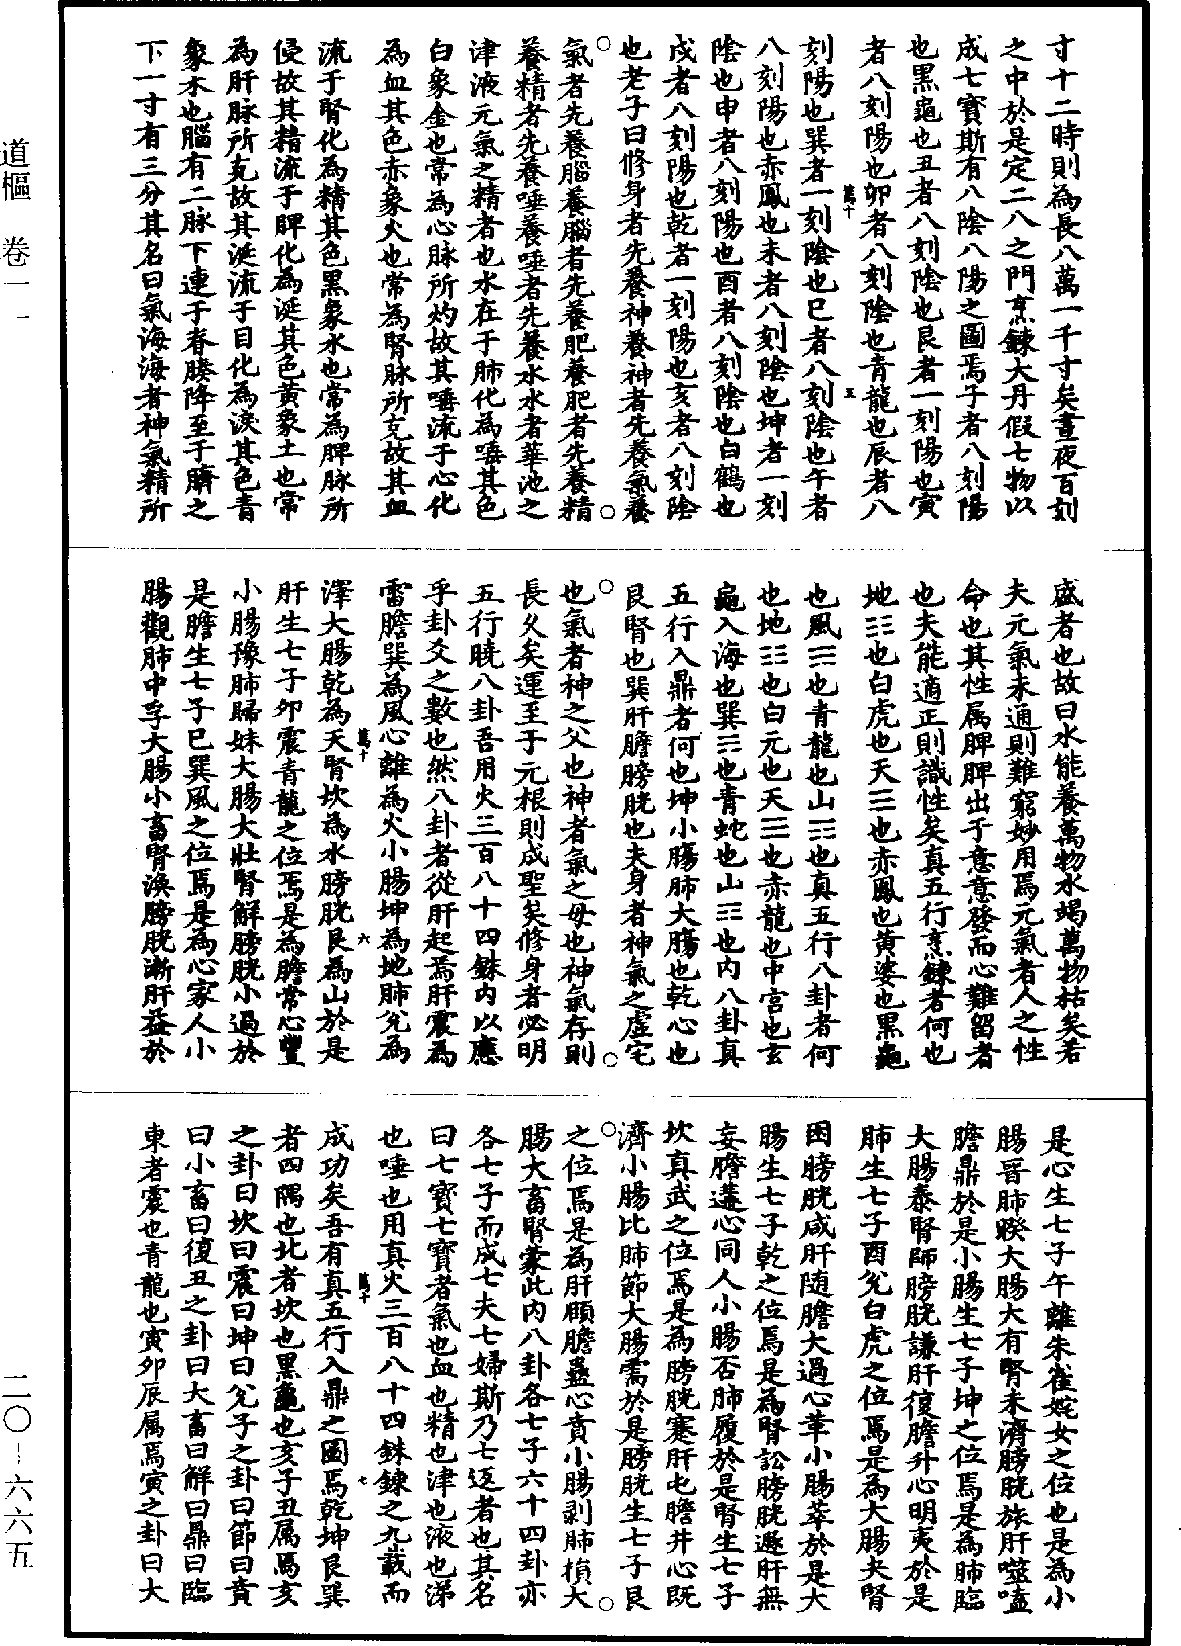 寸十二時則為長八萬一千寸矣晝夜百刻
之中於是定二八之門烹鍊大丹假七物以
成七寶斯有八陰八陽之圖焉子者八刻陽
也黑龜也丑者八刻陰也艮者一刻陽也寅
者八刻陽也卯者八刻陰也青龍也辰者八
刻陽也巽者一刻陰也巳者八刻陰也午者
八刻陽也赤鳳也未者八刻陰也坤者一刻
陰也申者八刻陽也酉者八刻陰也白鶴也
戌者八刻陽也乾者一刻陽也亥者八刻陰
也老子曰修身者先養神養神者先養氣養
氣者先養腦養腦者先養肥養肥者先養精
養精者先養唾養唾者先養水水者華池之
津液元氣之精者也水在于肺化為唾其色
白象金也常為心脉所灼故其唾流于心化
為血其色赤象火也常為腎脉所克故其血
流于腎化為精其色黑象水也常為脾脉所
侵故其精流于脾化為涎其色黃象土也常
為肝脉所克故其涎流于目化為淚其色青
象木也腦有二脉下連于脊膝降至于臍之
下一寸有三分其名曰氣海海者神氣精所
盛者也故曰水能養萬物水竭萬物枯矣若
夫元氣未通則難窮妙用焉元氣者人之性
命也其性属脾脾出于意意發而心難留者
也夫能適正則識性矣真五行烹鍊者何也
地☷也白虎也天☰也赤鳳也黃婆也黑龜
也風☴也青龍也山☶也真五行八卦者何
也地☷也白元也天☰也赤龍也中宮也玄
龜入海也巽☴也青蛇也山☶也內八卦真
五行入鼎者何也坤小腸肺大腸也乾心也
艮腎也巽肝膽膀胱也夫身者神氣之虛宅
也氣者神之父也神者氣之母也神氣存則
長久矣運至于元根則成聖矣修身者必明
五行曉八卦吾用火三百八十四銖內以應
乎卦爻之數也然八卦者從肝起焉肝震為
雷膽巽為風心離為火小腸坤為地肺兌為
澤大腸乾為天腎坎為水膀胱艮為山於是
肝生七子卯震青龍之位焉是為膽常心豐
小腸豫肺歸妹大腸大壯腎解膀胱小過於
是膽生七子巳巽風之位焉是為心家人小
腸觀肺中孚大腸小畜腎渙膀胱漸肝益於
是心生七子午離朱雀姹女之位也是為小
腸晉肺睽大腸大有腎未濟膀胱旅肝噬嗑
膽鼎於是小腸生七子坤之位焉是為肺臨
大腸泰腎師膀胱謙肝復膽升心明夷於是
肺生七子酉兌白虎之位焉是為大腸夬腎
困膀胱咸肝隨膽大過心革小腸萃於是大
腸生七子乾之位焉是為腎訟膀胱遯肝無
妄膽遘心同人小腸否肺履於是腎生七子
坎真武之位焉是為膀胱蹇肝屯膽井心既
濟小腸比肺節大腸需於是膀胱生七子艮
之位焉是為肝頤膽蠱心賁小腸剝肺損大
腸大畜腎蒙此內八卦各七子六十四卦亦
各七子而成七夫七婦斯乃七返者也其名
曰七寶七寶者氣也血也精也津也液也涕
也唾也用真火三百八十四銖鍊之九載而
成功矣吾有真五行入鼎之圖焉乾坤艮巽
者四隅也北者坎也黑龜也亥子丑属焉亥
之卦曰坎曰震曰坤曰兌子之卦曰節曰賁
曰小畜曰復丑之卦曰大畜曰解曰鼎曰臨
東者震也青龍也寅卯辰属焉寅之卦曰大
萬十
五
萬十
六
萬十
七
道樞　卷一一
二〇--六六五